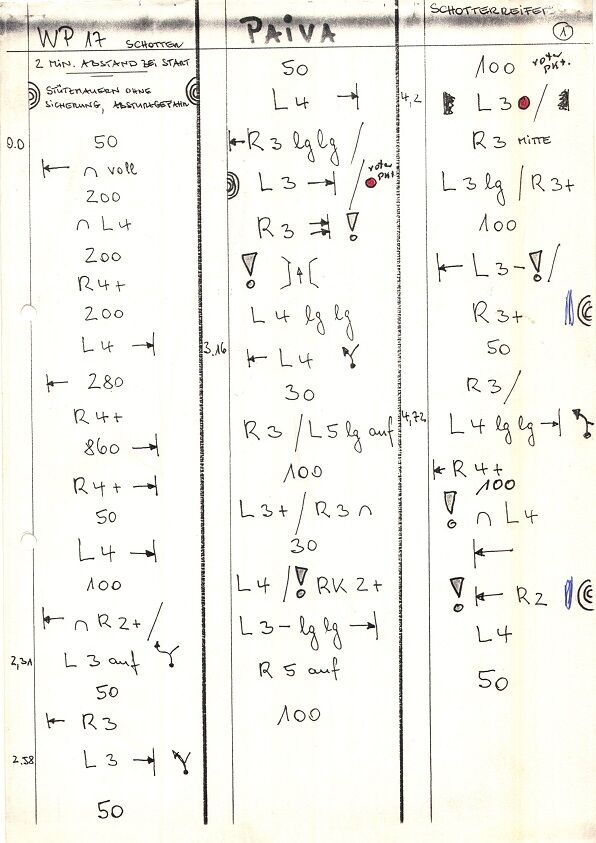 WP 17 SCHOTTEN
PAIVA
SCHOTTERREIFEN
1
2 MIN. ABSTAND BEI START
STÜTZMAUERN OHNE
SICHERUNG, ABSTURZGEFAHR
0.0 50
∩ voll
200
∩ L4
200
R4+
200
L4 →|
|← 280
R4+
860 →|
R4+ →|
50
L4 →|
100
|← ∩ R2+/
2,31 L3 auf
50
|← R3
2.58 L3 →|
50
50
L4 →|
|← R3 lg lg /
L3 →| / roter Pkt
R3 →| !
! ]↑[
L4 lg lg
3.16 |← L4
30
R3 / L5 lg auf
100
L3+ / R3 ∩
30
L4 / ! RK 2+
L3- lg lg →|
R5 auf
100
100 roter Pkt.
4,2 L3 /
R3 MITTE
L3 lg / R3+
100
|← L3- ! /
R3+
50
R3 /
4,72 L4 lg lg →|
|← R4+
100
! ∩ L4
|←
! |← R2
L4
50